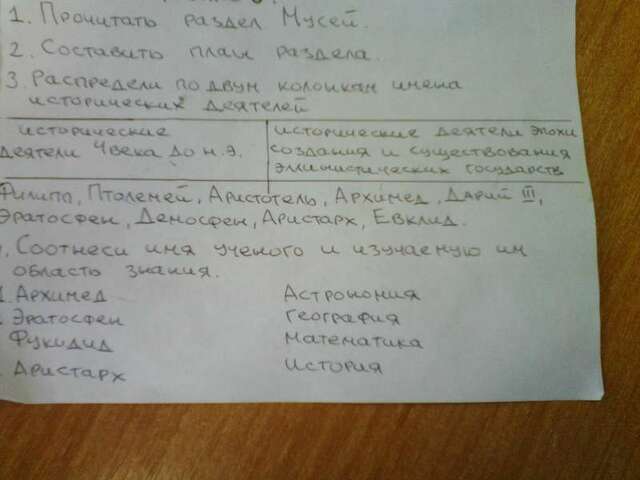 1. Прочитать раздел Мусей.
2. Составить план раздела.
3. Распредели по двум колонкам имена
исторических деятелей
исторические
деятели 4 века до н.э.
исторические деятели эпохи
создания и существования
эллинистических государств
Филипп, Птолемей, Аристотель, Архимед, Дарий III,
Эратосфен, Демосфен, Аристарх, Евклид.
Соотнеси имя ученого и изучаемую им
область знания.
Архимед Астрономия
Эратосфен География
Фукидид Математика
Аристарх История